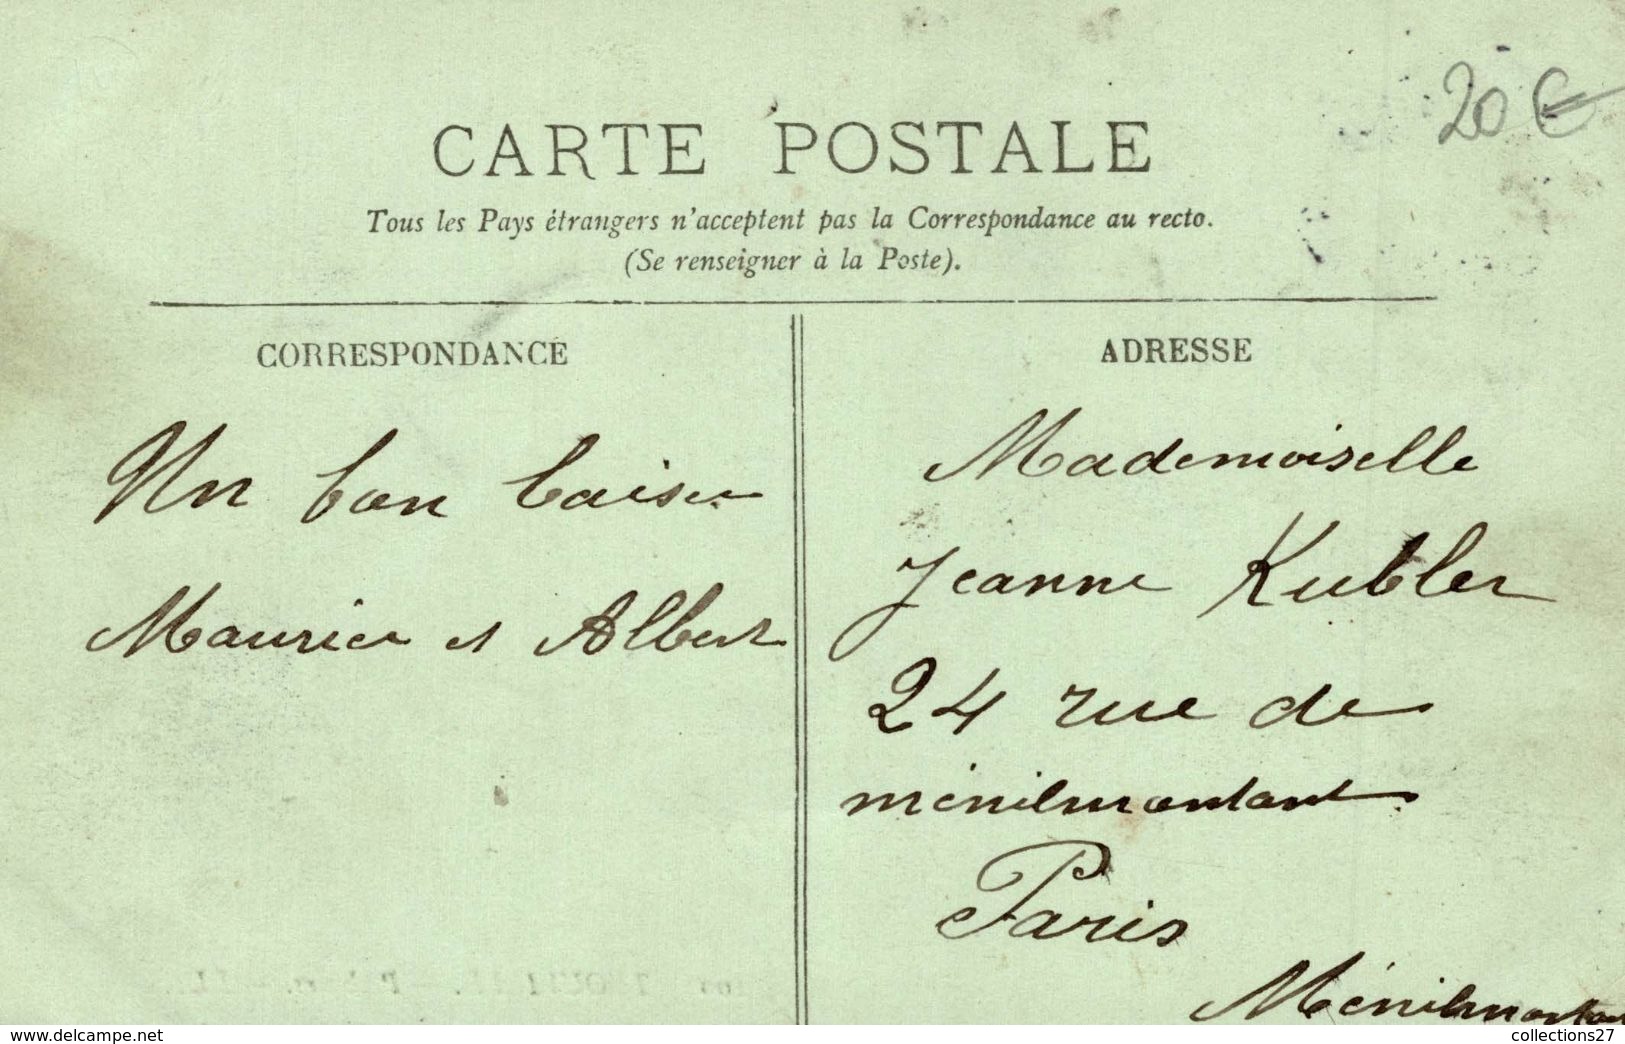 20 €
CARTE POSTALE
Tous les Pays étrangers n'acceptent pas la Correspondance au recto.
(Se renseigner à la Poste).
CORRESPONDANCE
Un bon baiser
Maurice et Albert
ADRESSE
Mademoiselle
Jeanne Kubler
24 rue de
ménilmontant
Paris
Ménilmontan
www.delcampe.net
collections27